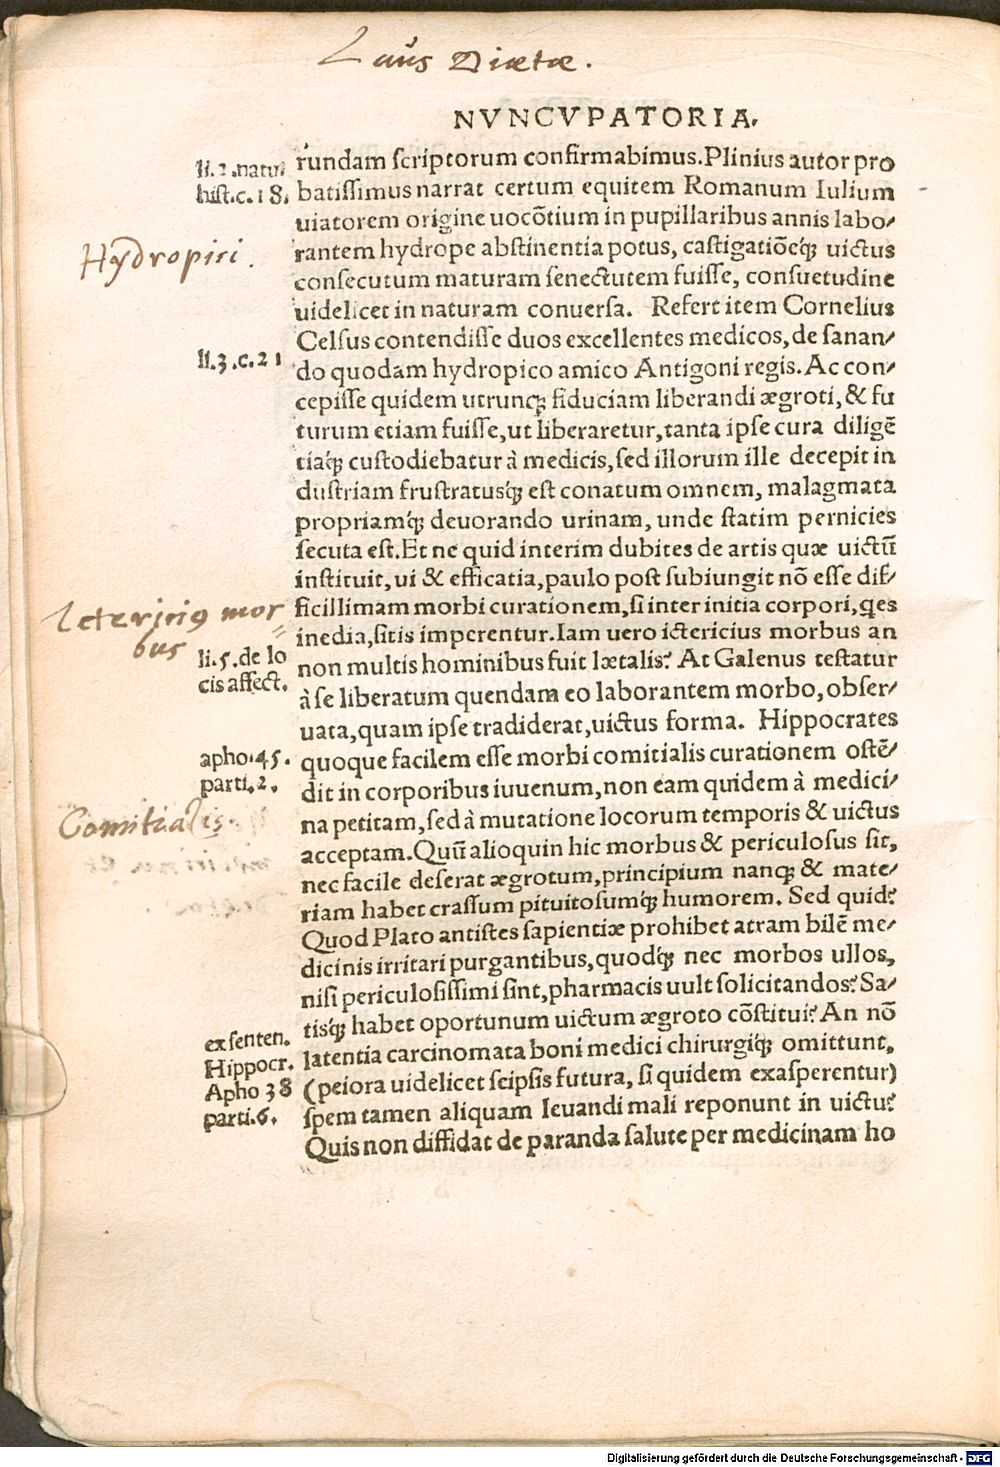 Laus Diætæ.
NVNCVPATORIA.
li.2.natu.
hist.c.18.
rundam scriptorum confirmabimus. Plinius autor pro
batissimus narrat certum equitem Romanum Iulium
uiatorem origine uocōtium in pupillaribus annis labo/
Hydropici.
rantem hydrope abstinentia potus, castigatiōeq́ꝫ uictus
consecutum maturam senectutem fuisse, consuetudine
uidelicet in naturam conuersa. Refert item Cornelius
Celsus contendisse duos excellentes medicos, de sanan/
li.3.c.21
do quodam hydropico amico Antigoni regis. Ac con/
cepisse quidem utrunqꝫ fiduciam liberandi ægroti, & fu
turum etiam fuisse, ut liberaretur, tanta ipse cura diligē
tiaq́ꝫ custodiebatur à medicis, sed illorum ille decepit in
dustriam frustratusq́ꝫ est conatum omnem, malagmata
propriamq́ꝫ deuorando urinam, unde statim pernicies
secuta est. Et ne quid interim dubites de artis quæ uictū
instituit, ui & efficatia, paulo post subiungit nō esse dif/
Ictericius mor=
bus
ficillimam morbi curationem, si inter initia corpori, q̄es
inedia, sitis imperentur. Iam uero ictericius morbus an
li.5.de lo
cis affect.
non multis hominibus fuit lætalis? At Galenus testatur
à se liberatum quendam eo laborantem morbo, obser/
uata, quam ipse tradiderat, uictus forma. Hippocrates
apho.45.
parti.2.
quoque facilem esse morbi comitialis curationem ostē/
dit in corporibus iuuenum, non eam quidem à medici/
Comitialis.
na petitam, sed à mutatione locorum temporis & uictus
acceptam. Quū alioquin hic morbus & periculosus sit,
nec facile deserat ægrotum, principium nanqꝫ & mate/
riam habet crassum pituitosumq́ꝫ humorem. Sed quid?
Quod Plato antistes sapientiæ prohibet atram bilē me/
dicinis irritari purgantibus, quodq́ꝫ nec morbos ullos,
nisi periculosissimi sint, pharmacis uult solicitandos? Sa/
tisq́ꝫ habet oportunum uictum ægroto cōstitui? An nō
ex senten.
Hippocr.
Apho 38
parti.6.
latentia carcinomata boni medici chirurgiq́ꝫ omittunt,
(peiora uidelicet seipsis futura, si quidem exasperentur)
spem tamen aliquam leuandi mali reponunt in uictu?
Quis non diffidat de paranda salute per medicinam ho
Digitalisierung gefördert durch die Deutsche Forschungsgemeinschaft - DFG